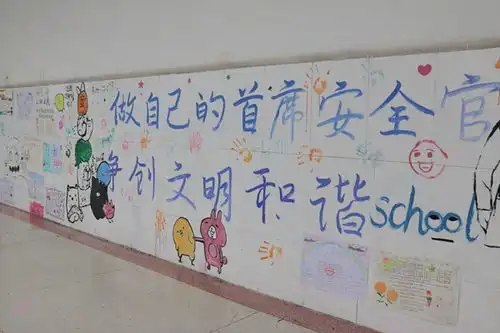 做自己的首席安全官
争创文明和谐school